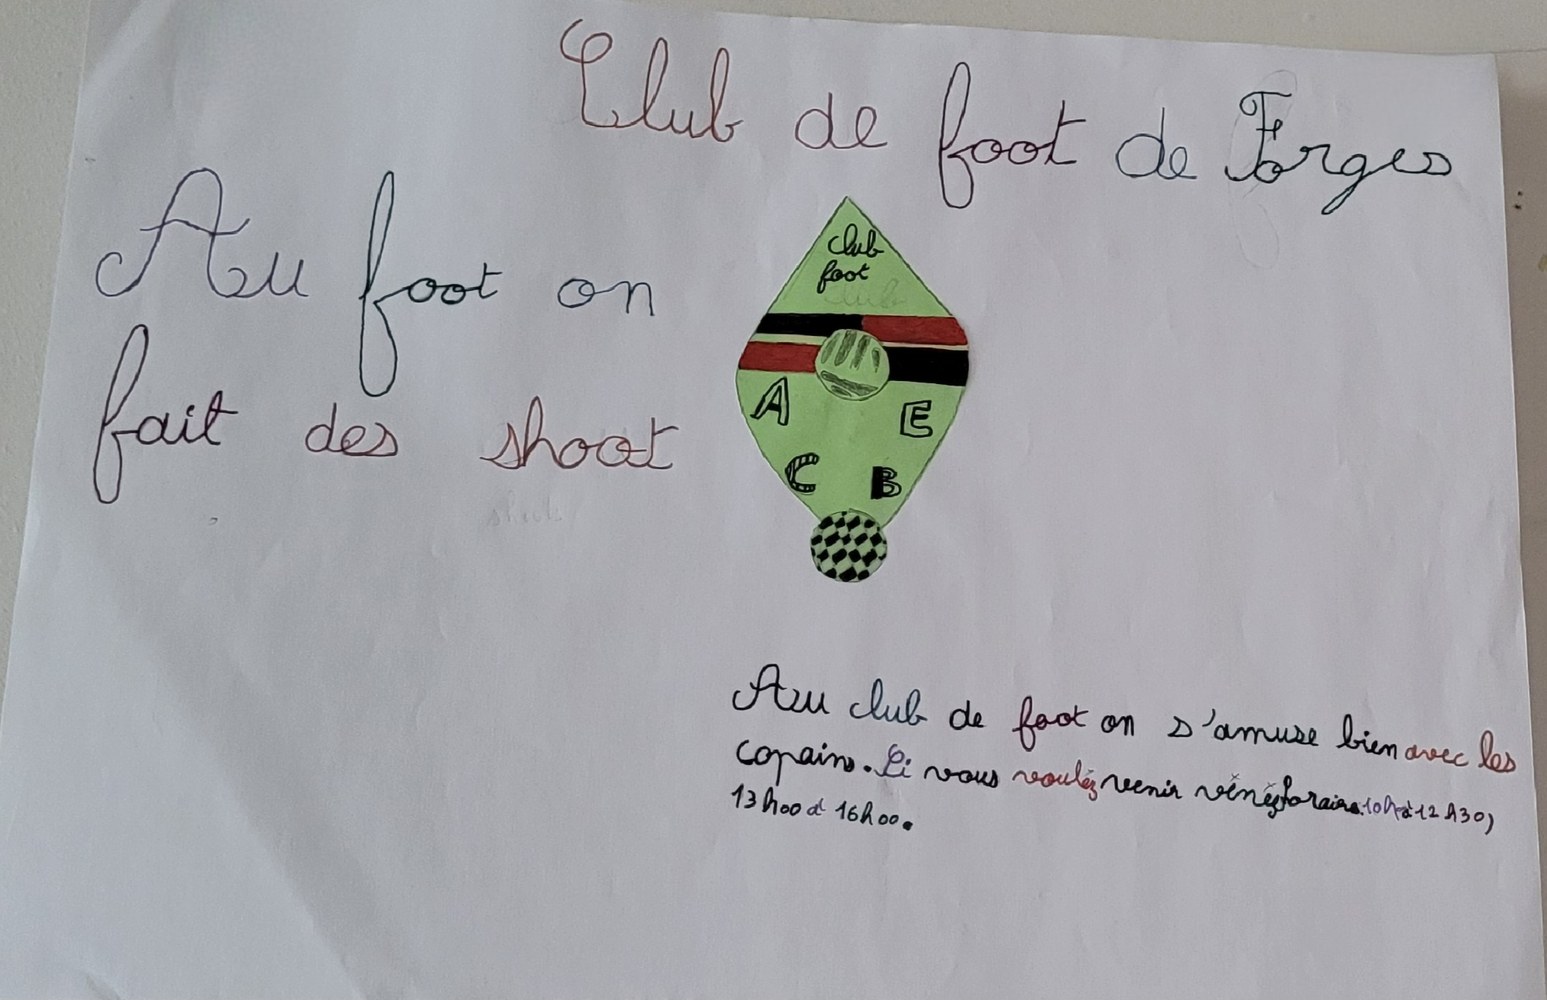 Club de foot de Forges
Au foot on
fait des shoot
club
foot
A E
C B
Au club de foot on s'amuse bien avec les
copains. Si vous vouléz venir vénéz horaire: 10h à 12h30,
13h00 à 16h00.